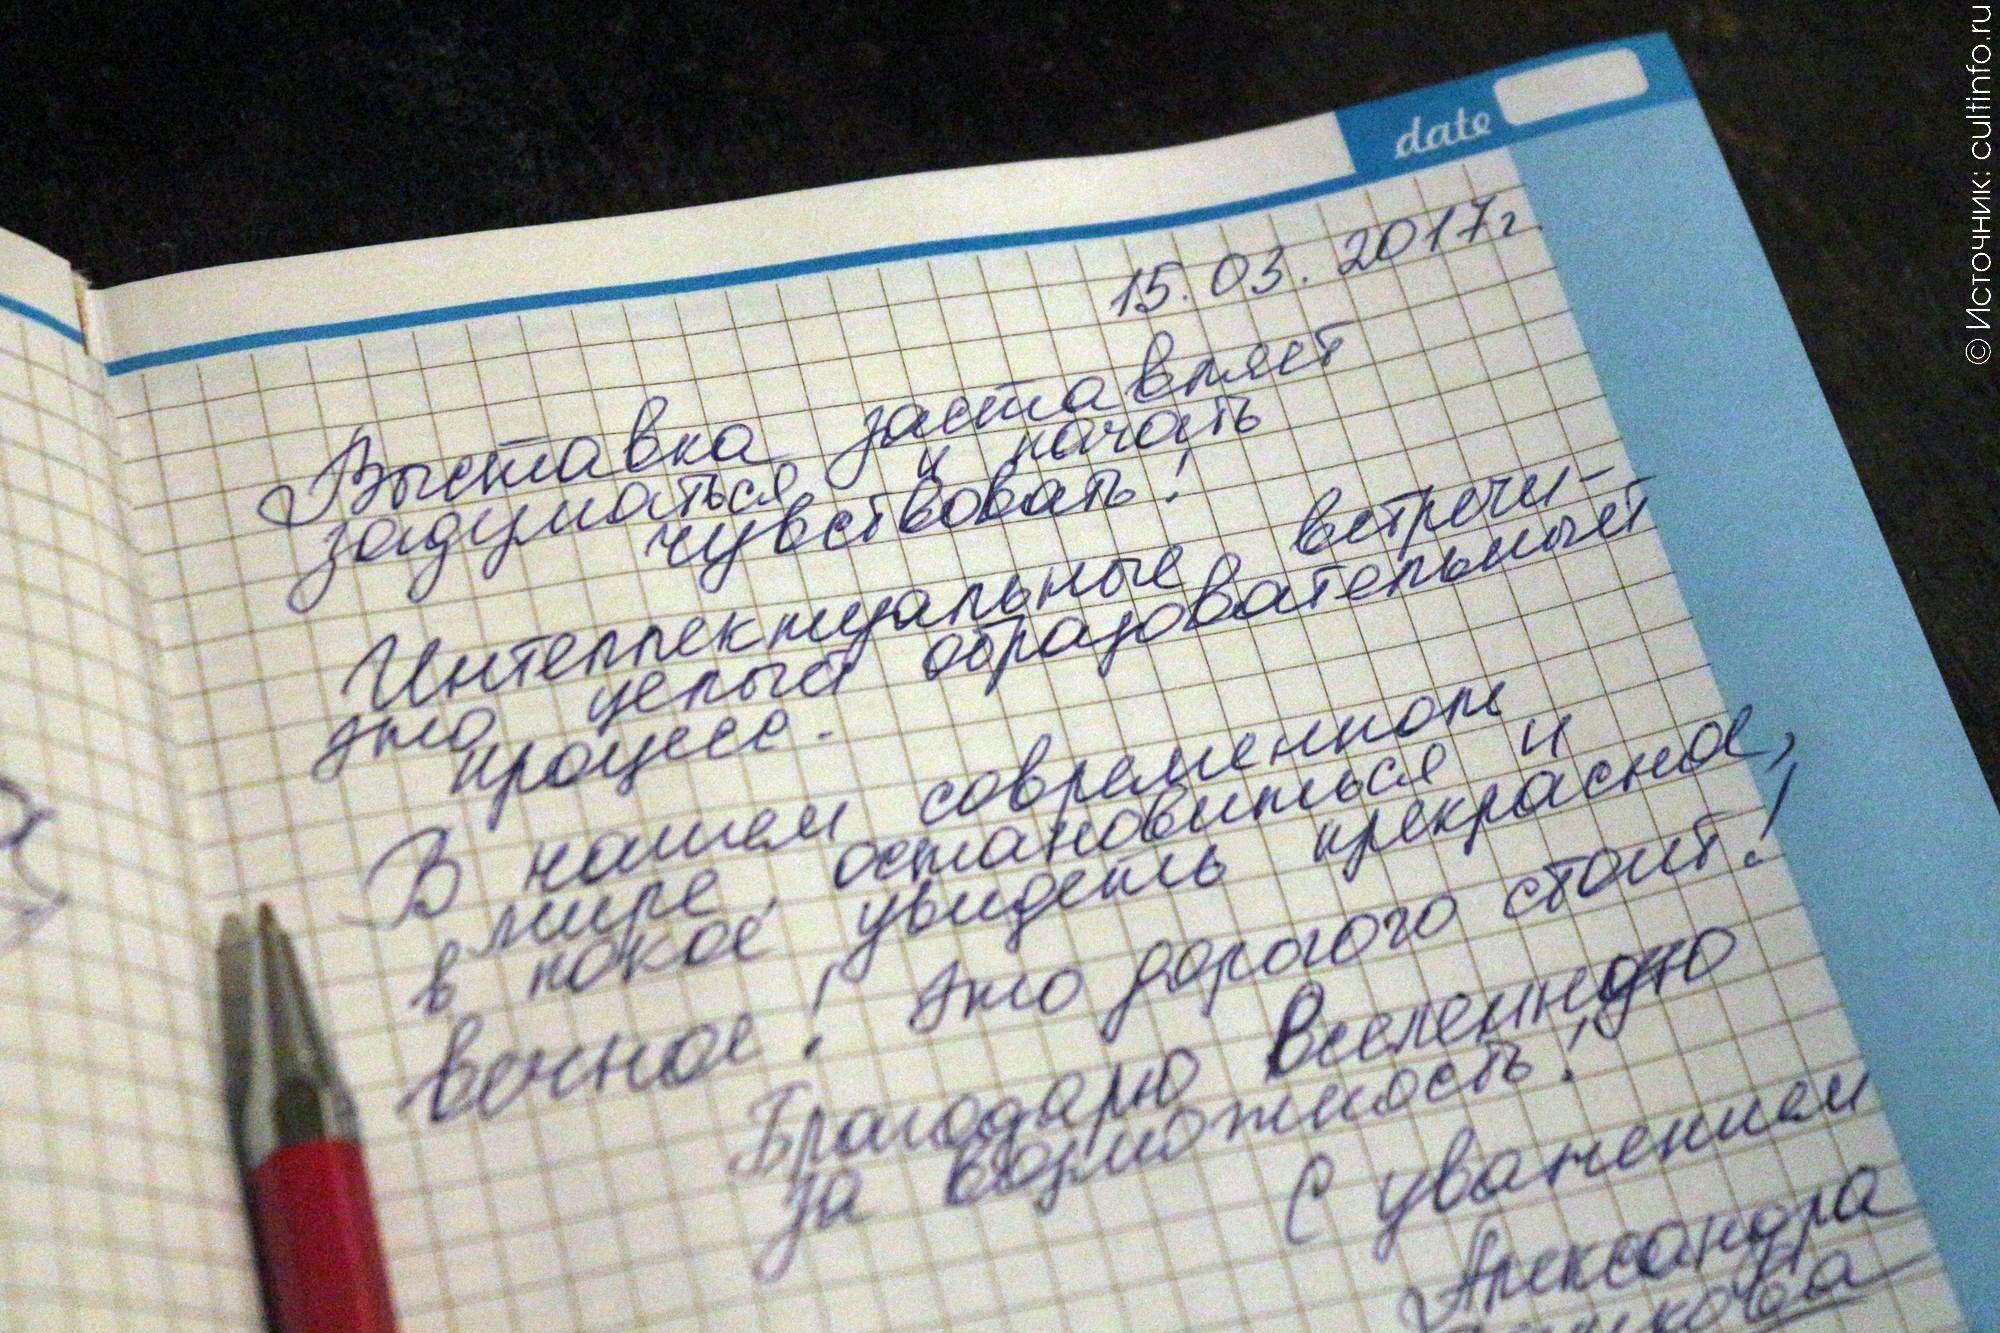 date
15.03.2017г.
Выставка заставляет
задуматься и начать
чувствовать!
Интеллектуальные встречи-
это целый образовательный
процесс.
В нашем современном
мире, остановиться и
в покое увидеть прекрасное,
вечное! Это дорого стоит!
Благодарю Вселенную
за возможность!
С уважением
Александра
© Источник: cultinfo.ru